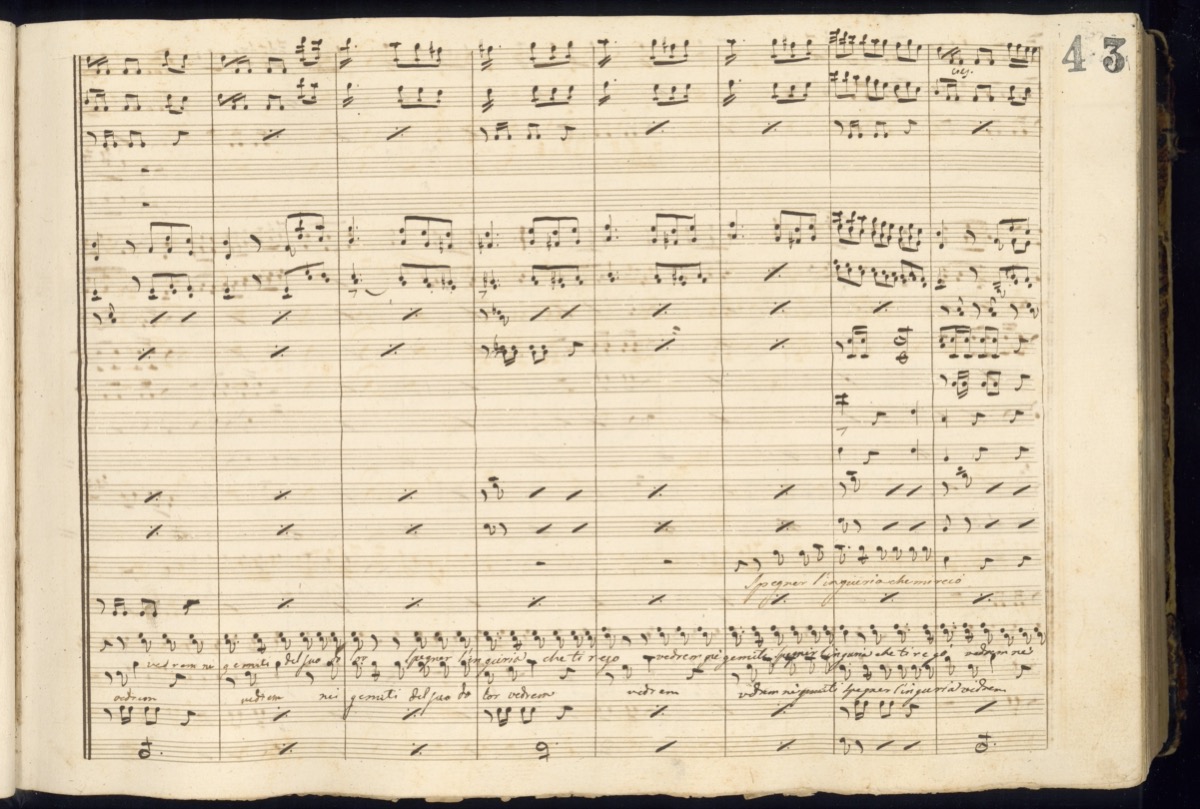 43
Spegner l'ingiuria che mi reco
vedrem ne gemiti del suo dolor spegner l'ingiuria che ti reco vedrem ne gemiti spegner l'ingiuria che ti reco vedrem ne
vedrem vedrem nei gemiti del suo dolor vedrem vedrem vedrem ne gemiti spegner l'ingiuria vedrem